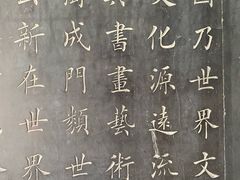 乃世界文
化源遠流
書畫藝術
成門類世
新在世界